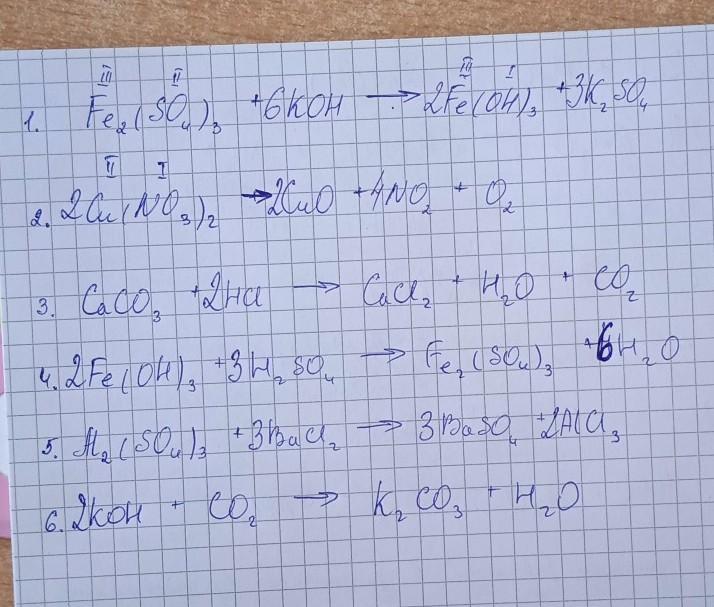 1. Fe₂(SO₄)₃ + 6KOH → 2Fe(OH)₃ + 3K₂SO₄
III II III I
2. 2Cu(NO₃)₂ → 2CuO + 4NO₂ + O₂
II I
3. CaCO₃ + 2HCl → CaCl₂ + H₂O + CO₂
4. 2Fe(OH)₃ + 3H₂SO₄ → Fe₂(SO₄)₃ + 6H₂O
5. Al₂(SO₄)₃ + 3BaCl₂ → 3BaSO₄ + 2AlCl₃
6. 2KOH + CO₂ → K₂CO₃ + H₂O